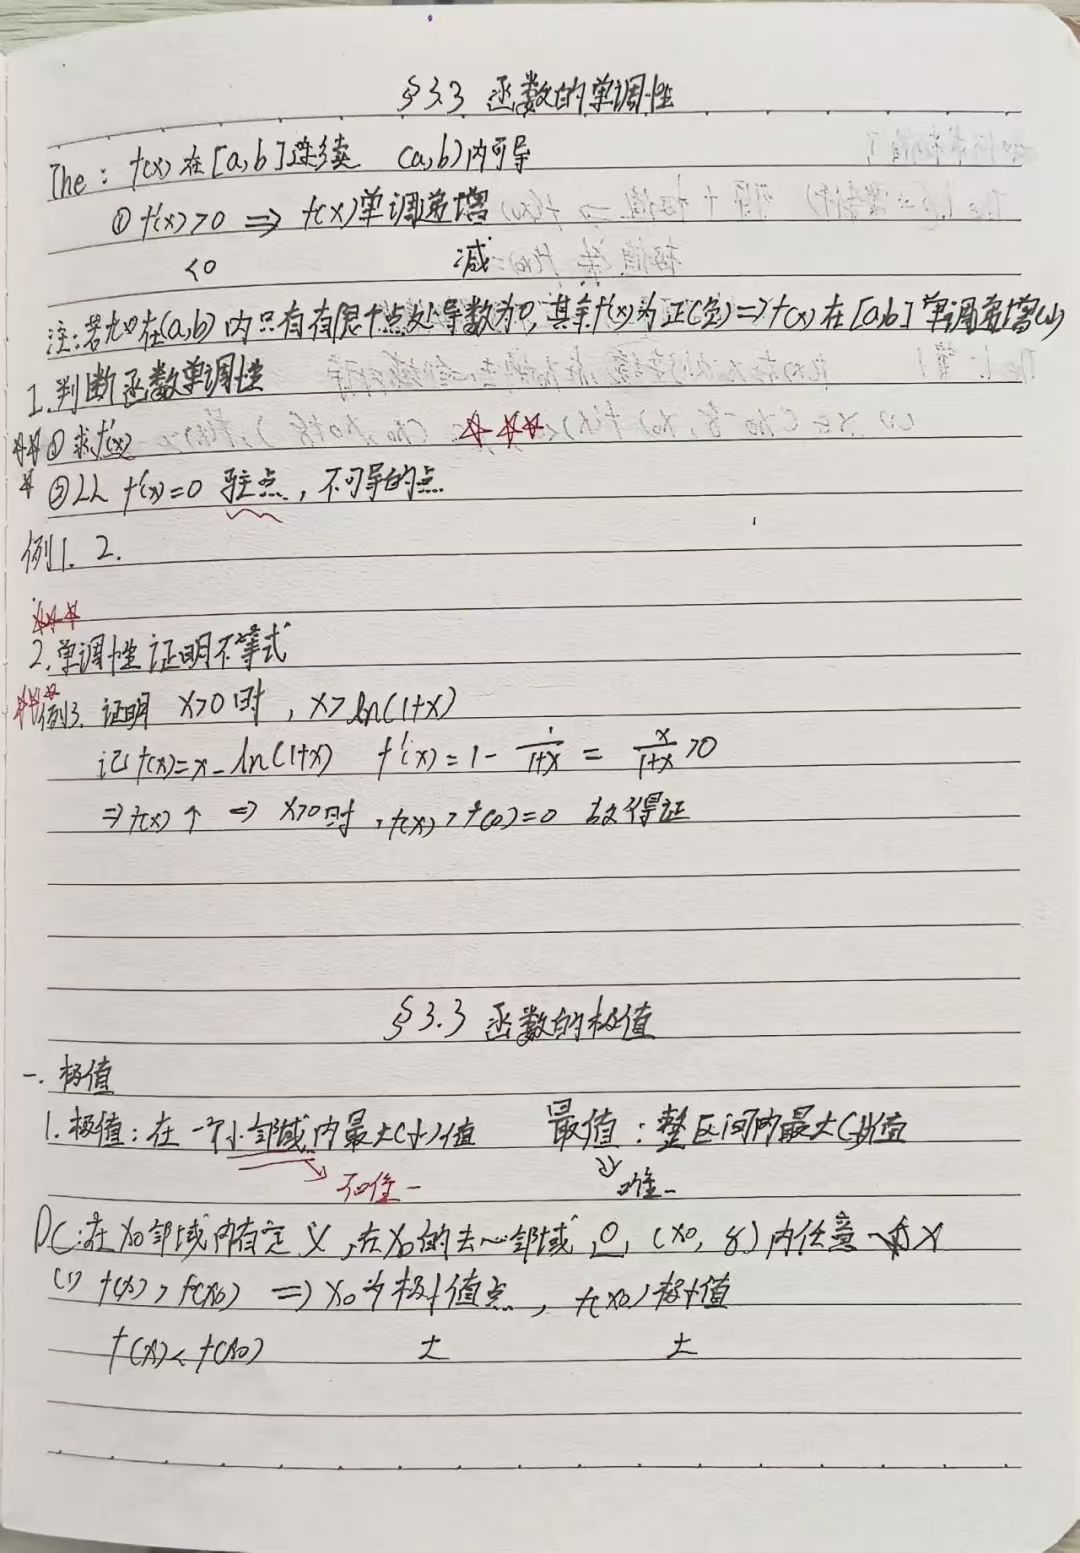 §3.3 函数的单调性
The: f(x)在[a,b]连续 (a,b)内可导
① f'(x)>0 ⇒ f(x)单调递增
<0 减
注:若f(x)在(a,b)内只有有限个点处导数为0,其余f'(x)为正(负)⇒f(x)在[a,b]单调递增(减)
1.判断函数单调性
① 求f'(x)
②以 f'(x)=0 驻点,不可导的点
例1. 2.
2.单调性证明不等式
例3. 证明 x>0时, x>ln(1+x)
记f(x)=x-ln(1+x) f'(x)=1-1/(1+x)=x/(1+x)>0
⇒f(x)↑ ⇒ x>0时,f(x)>f(0)=0 故得证
§3.3 函数的极值
一.极值
1.极值:在一个小邻域内最大(小)值 最值:整区间内最大(小)值
不唯一 唯一
DC:在x0邻域内有定义,在x0的去心邻域,U,(x0,δ)内任意一点x
(1) f(x)>f(x0) ⇒x0为极小值点, f(x0)极小值
f(x)<f(x0) 大 大